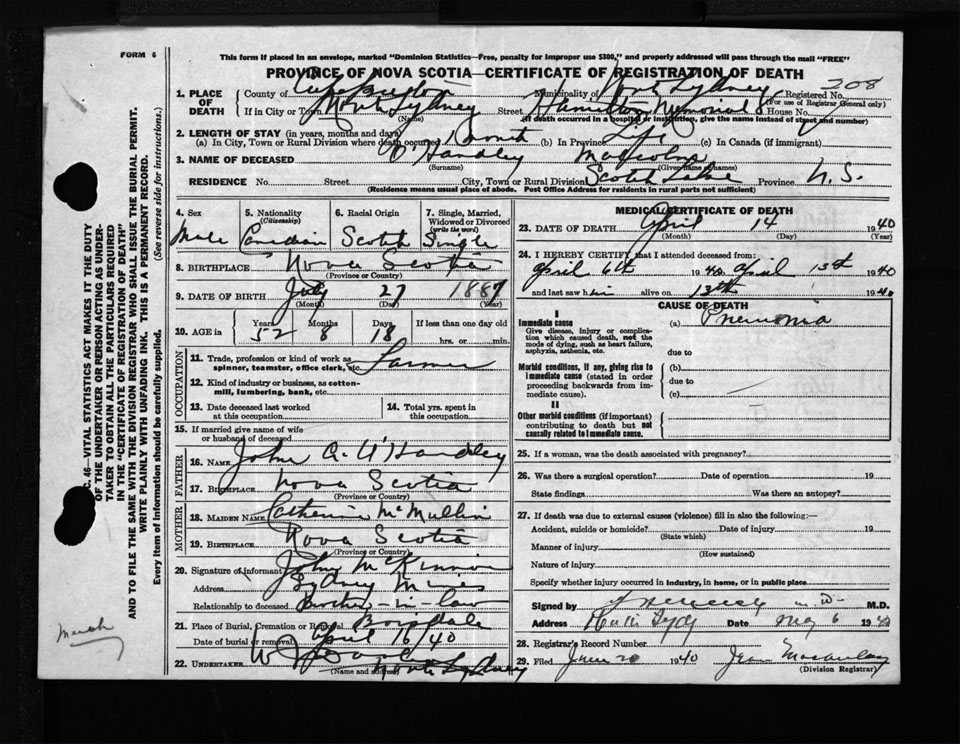 FORM 6
This form if placed in an envelope, marked "Dominion Statistics—Free, penalty for improper use $300," and properly addressed will pass through the mail "FREE"
PROVINCE OF NOVA SCOTIA—CERTIFICATE OF REGISTRATION OF DEATH
208
1. PLACE OF DEATH County of Cape Breton Municipality of North Sydney Registered No. (For use of Registrar General only)
If in City or Town North Sydney (Name) Street Hamilton Memorial House No.
(If death occurred in a hospital or institution, give the name instead of street and number)
2. LENGTH OF STAY (in years, months and days)
(a) In City, Town or Rural Division where death occurred month (b) In Province Life (c) In Canada (if immigrant)
3. NAME OF DECEASED O'Handley (Surname) Malcolm (Given name or names)
RESIDENCE No. Street City, Town or Rural Division Scotch Lake Province N. S.
(Residence means usual place of abode. Post Office Address for residents in rural parts not sufficient)
4. Sex Male
5. Nationality (Citizenship) Canadian
6. Racial Origin Scotch
7. Single, Married, Widowed or Divorced (write the word) Single
8. BIRTHPLACE Nova Scotia
(Province or Country)
9. DATE OF BIRTH July 27 1887
(Month) (Day) (Year)
10. AGE in Years 52 Months 8 Days 18 If less than one day old hrs. or min.
OCCUPATION
11. Trade, profession or kind of work as spinner, teamster, office clerk, etc. Farmer
12. Kind of industry or business, as cotton-mill, lumbering, bank, etc.
13. Date deceased last worked at this occupation
14. Total yrs. spent in this occupation
15. If married give name of wife or husband of deceased
FATHER
16. NAME John A. O'Handley
17. BIRTHPLACE Nova Scotia
(Province or Country)
MOTHER
18. MAIDEN NAME Catherine McMullin
19. BIRTHPLACE Nova Scotia
(Province or Country)
20. Signature of informant John McKinnon
Address Sydney Mines
Relationship to deceased Brother-in-law
21. Place of Burial, Cremation or Removal Boisdale
Date of burial or removal April 16/40
22. UNDERTAKER North Sydney
(Name and address)
MEDICAL CERTIFICATE OF DEATH
23. DATE OF DEATH April 14 1940
(Month) (Day) (Year)
24. I HEREBY CERTIFY that I attended deceased from:
April 6th 1940 April 13th 1940
and last saw him alive on 13th 1940
CAUSE OF DEATH
I
Immediate cause (a) Pneumonia
Give disease, injury or complication which caused death, not the mode of dying, such as heart failure, asphyxia, asthenia, etc.
due to
Morbid conditions, if any, giving rise to immediate cause (stated in order proceeding backwards from immediate cause).
(b)
due to
(c)
II
Other morbid conditions (if important) contributing to death but not causally related to immediate cause.
25. If a woman, was the death associated with pregnancy?
26. Was there a surgical operation? Date of operation 19
State findings Was there an autopsy?
27. If death was due to external causes (violence) fill in also the following:—
Accident, suicide or homicide? (State which) Date of injury 19
Manner of injury
(How sustained)
Nature of injury
Specify whether injury occurred in industry, in home, or in public place
Signed by M.D. M.D.
Address Date May 6 1940
28. Registrar's Record Number
29. Filed June 20 1940 Jean Macaulay
(Division Registrar)
C. 46—VITAL STATISTICS ACT MAKES IT THE DUTY
OF THE UNDERTAKER OR PERSON ACTING AS UNDER-
TAKER TO OBTAIN ALL THE PARTICULARS REQUIRED
IN THE "CERTIFICATE OF REGISTRATION OF DEATH"
AND TO FILE THE SAME WITH THE DIVISION REGISTRAR WHO SHALL ISSUE THE BURIAL PERMIT.
WRITE PLAINLY WITH UNFADING INK. THIS IS A PERMANENT RECORD.
Every item of information should be carefully supplied. (See reverse side for instructions.)